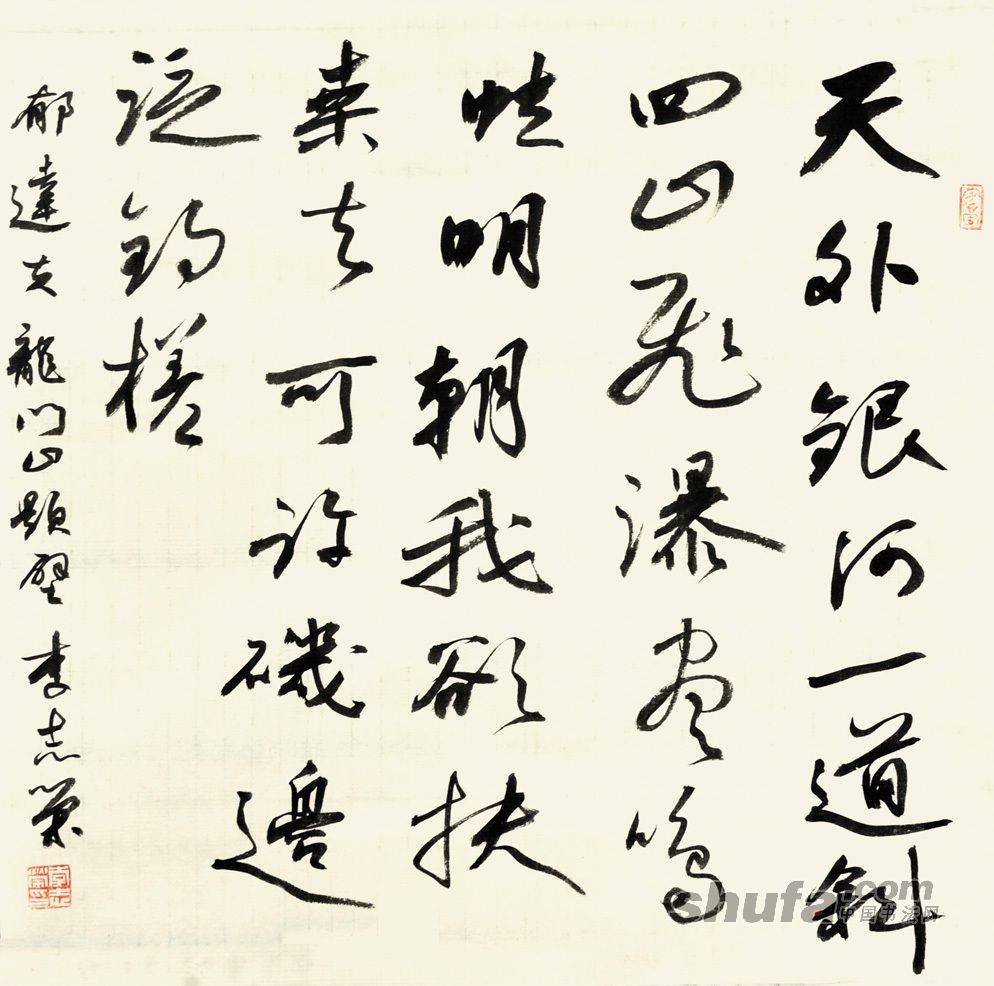 天外銀河一道斜
四山飛瀑盡鳴
蛙明朝我欲扶
桑去可許磯邊
泛釣槎
郁達夫龍門山題壁 李志榮
shufa.com
中国书法网